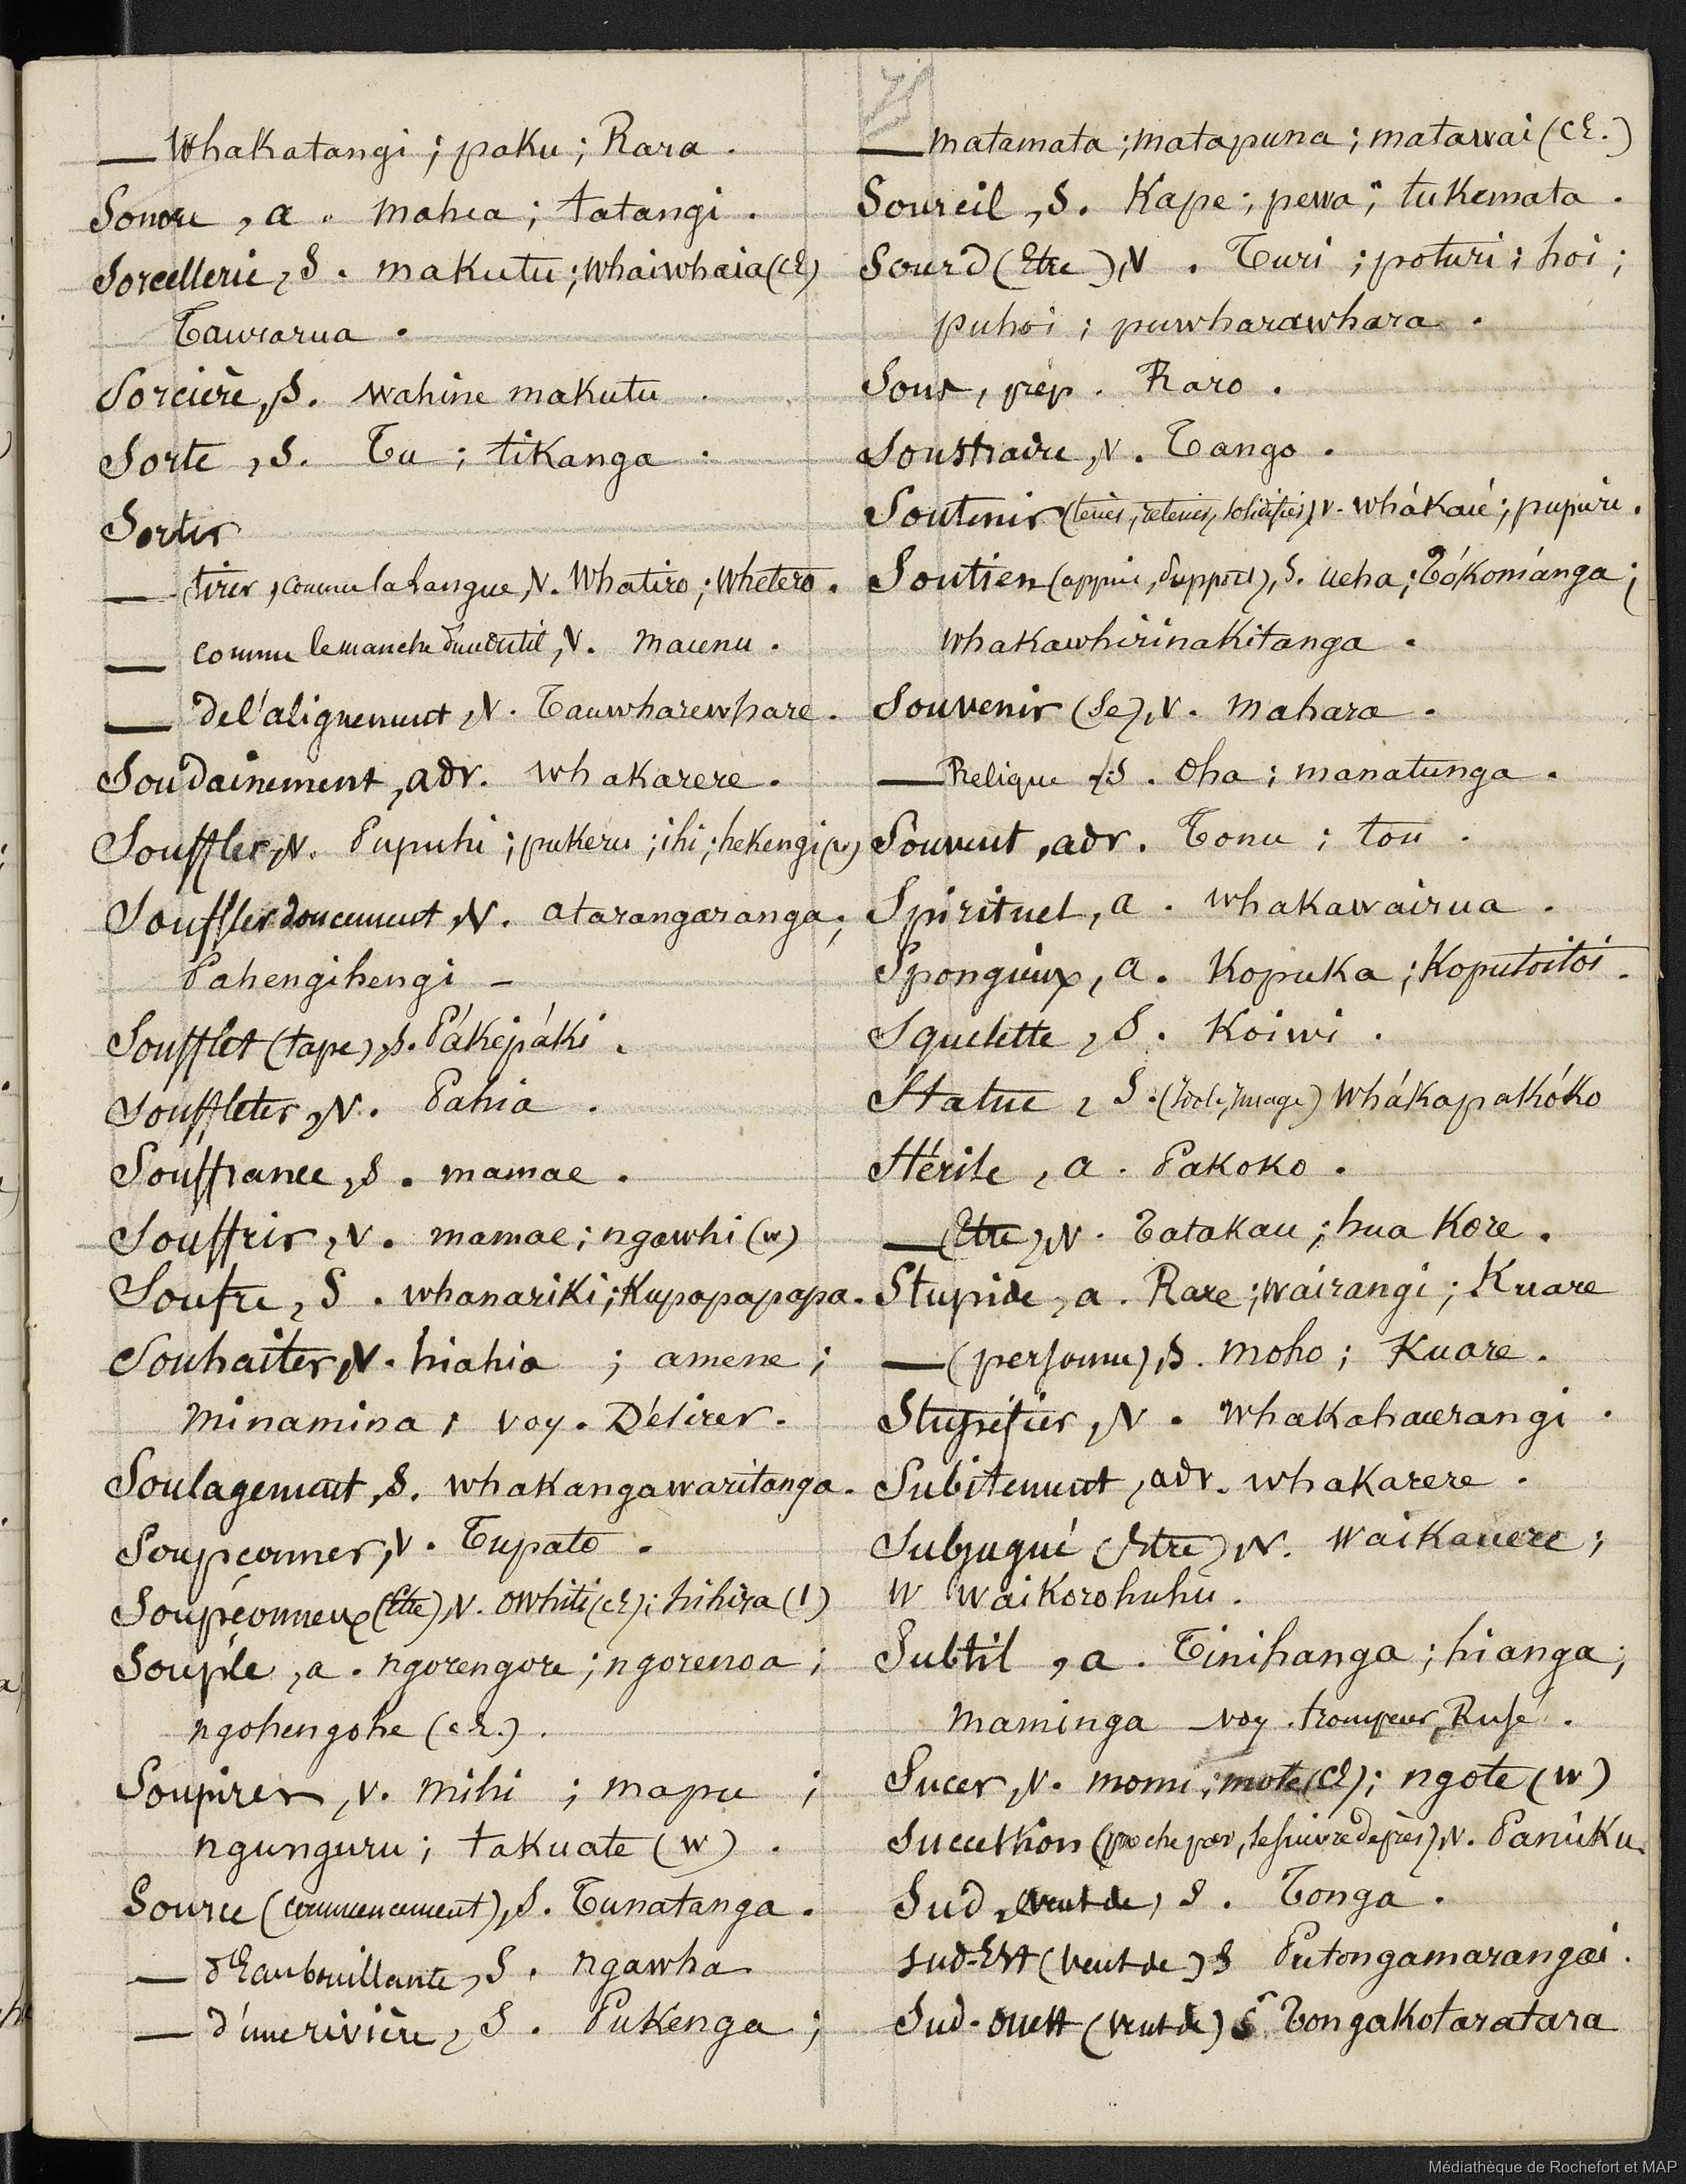 75
— Whakatangi ; paku ; Rara .
Sonore , a . mahea ; tatangi .
Sorcellerie , S . makutu ; whaiwhaia (CE)
Tawrarua .
Sorcière , S . wahine makutu .
Sorte , S . Tu ; tikanga .
Sortir
— tirer , comme la Langue , V . Whatiro ; Whetero .
— comme le manche d'un outil , V . maunu .
— de l'alignement , V . Tauwharewhare .
Soudainement , adv . whakarere .
Souffler , V . Pupuhi ; pukeru ; ihi ; hekengi (w)
Souffler doucement , V . atarangaranga ;
Pahengihengi –
Soufflet (tape) , S . Pákipáki .
Souffleter , V . Pahia .
Souffrance , S . mamae .
Souffrir , V . mamae ; ngawhi (w)
Soufre , S . whanariki ; Kupapapapa .
Souhaiter , V . hiahia ; amene ;
minamina ; voy . Désirer .
Soulagement , S . whakangawaritanga .
Soupçonner , V . Tupato .
Soupçonneux (Etre) , V . owhiti (CE) ; hihira (1)
Souple , a . ngorengore ; ngorenoa ;
ngohengohe (CE.) .
Soupirer , V . mihi ; mapu ;
ngunguru ; takuate (w) .
Source (commencement) , S . Tunatanga .
— d'Eau bouillante , S . ngawha
— d'une rivière , S . Pukenga ;
— matamata ; matapuna ; matawai (CE.)
Sourcil , S . Kape ; pewa ; tukemata .
Sourd (Etre) , V . Turi ; poturi ; hoi ;
puhoi ; puwharawhara .
Sous , prép . Raro .
Soustraire , V . Tango .
Soutenir (tenir, retenir, solidifier) , V . whákaú ; pupuri .
Soutien (appui, support) , S . ueha ; Tókománga ;
whakawhirinakitanga .
Souvenir (Se) , V . mahara .
— Relique , S . Oha ; manatunga .
Souvent , adv . Tonu ; tou .
Spirituel , a . whakawairua .
Spongieux , a . Kopuka ; Koputoitoi .
Squelette , S . Koiwi .
Statue , S . (Idole, Image) Whákapakóko
Stérile , a . Pakoko .
— (Etre) , V . Tatakau ; hua Kore .
Stupide , a . Rare ; wairangi ; Kuare
— (personne) , S . moho ; Kuare .
Stupéfier , V . Whakahaurangi .
Subitement , adv . whakarere .
Subjugué (Etre) , V . Waikauere ;
W Waikorohuhu .
Subtil , a . Tinihanga ; hianga ;
maminga – voy . trompeur , Rusé .
Sucer , V . momi ; mote (CE) ; ngote (w)
Succession (proche par, se suivre de près) , V . Panúku .
Sud , (vent de) , S . Tonga .
Sud-Est (vent de) S Putongamarangai .
Sud-ouest (vent de) S Tongakotaratara
Médiathèque de Rochefort et MAP